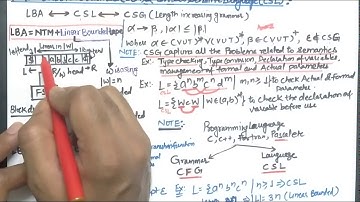 LBA ⟷ CSL ⟷ CSG (Length increasing grammar)
LBA = NTM + Linear Bounded Tape
α → β, |α| ≤ |β|
Where α ∈ (V∪T)* V (V∪T)*, β ∈ (V∪T)⁺, ε ∉ CSG
NOTE: CSG captures all the Problems related to semantics
Ex: Type checking, Type conversion, Declaration of variables,
management of formal and Actual Parameters
Ex: L = {aⁿ bᵐ cⁿ dᵐ | m,n ≥ 1} to check Actual & Formal
Parameters
Ex: L = {w c w | w ∈ (a,b)*} to check the declaration of
variable before use
w is string
|w| = n
NOTE:
Programming Language
C, C++, Fortran, Pascal etc
Grammar
Language
CFG
CSL
Ex: L = {aⁿ bⁿ cⁿ | n ≥ 1} → CSL
|L| = 3n (Linear Bounded)